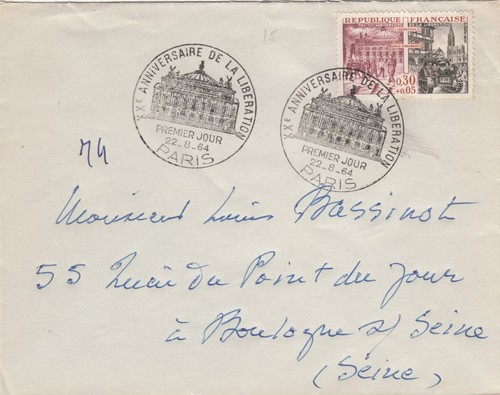 15
RÉPUBLIQUE FRANÇAISE
XXe ANNIVERSAIRE DE LA LIBÉRATION
0,30
+0,05
XXE ANNIVERSAIRE DE LA LIBÉRATION
PREMIER JOUR
22-8-64
PARIS
XXE ANNIVERSAIRE DE LA LIBÉRATION
PREMIER JOUR
22-8-64
PARIS
Monsieur Louis Bassinot
55 Quai du Point du Jour
à Boulogne s/ Seine
(Seine)